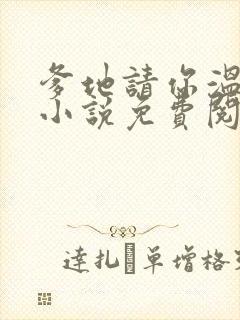 爹地請你溫
小說免費閱
達扎 單增格